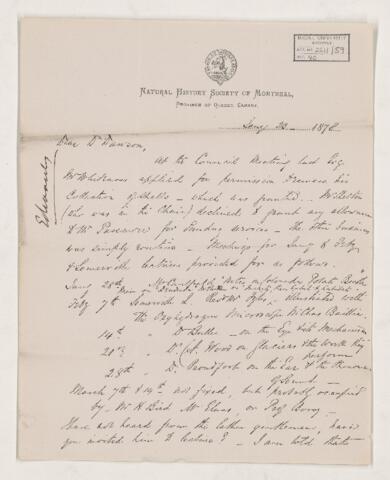 McGILL UNIVERSITY
ARCHIVES
ACC. NO. 2211/59
NATURAL HISTORY SOCIETY OF MONTREAL,
PROVINCE OF QUEBEC, CANADA.
Jany 1878
Dear Dr Dawson,
At the Council Meeting last Evg
Mr Whiteaves applied for permission to remove his
Collection of shells — which was granted.
(who was in the Chair) declined to grant any allowance
to Mr Passmore for Sunday services — the other business
was simply routine — Meetings for Jany & Feby
& Somerville Lectures provided for as follows.
Jany 28th Notes on Colorado Potato Beetle
Feby 7th Somerville L. Revd illustrated with
the Oxyhydrogen Microscope
14th " Dr Buller — on the Eye & its Mechanism
21st " Dr Wood on Glaciers & the work they
perform
28th " Dr Proudfoot on the Ear & the Phenomena
of Sound
March 7th & 14th not fixed, but probably occupied
by Mr H. Bird, or Prof Bovey
Have not heard from the latter gentleman, have
you invited him to lecture? — I am told that